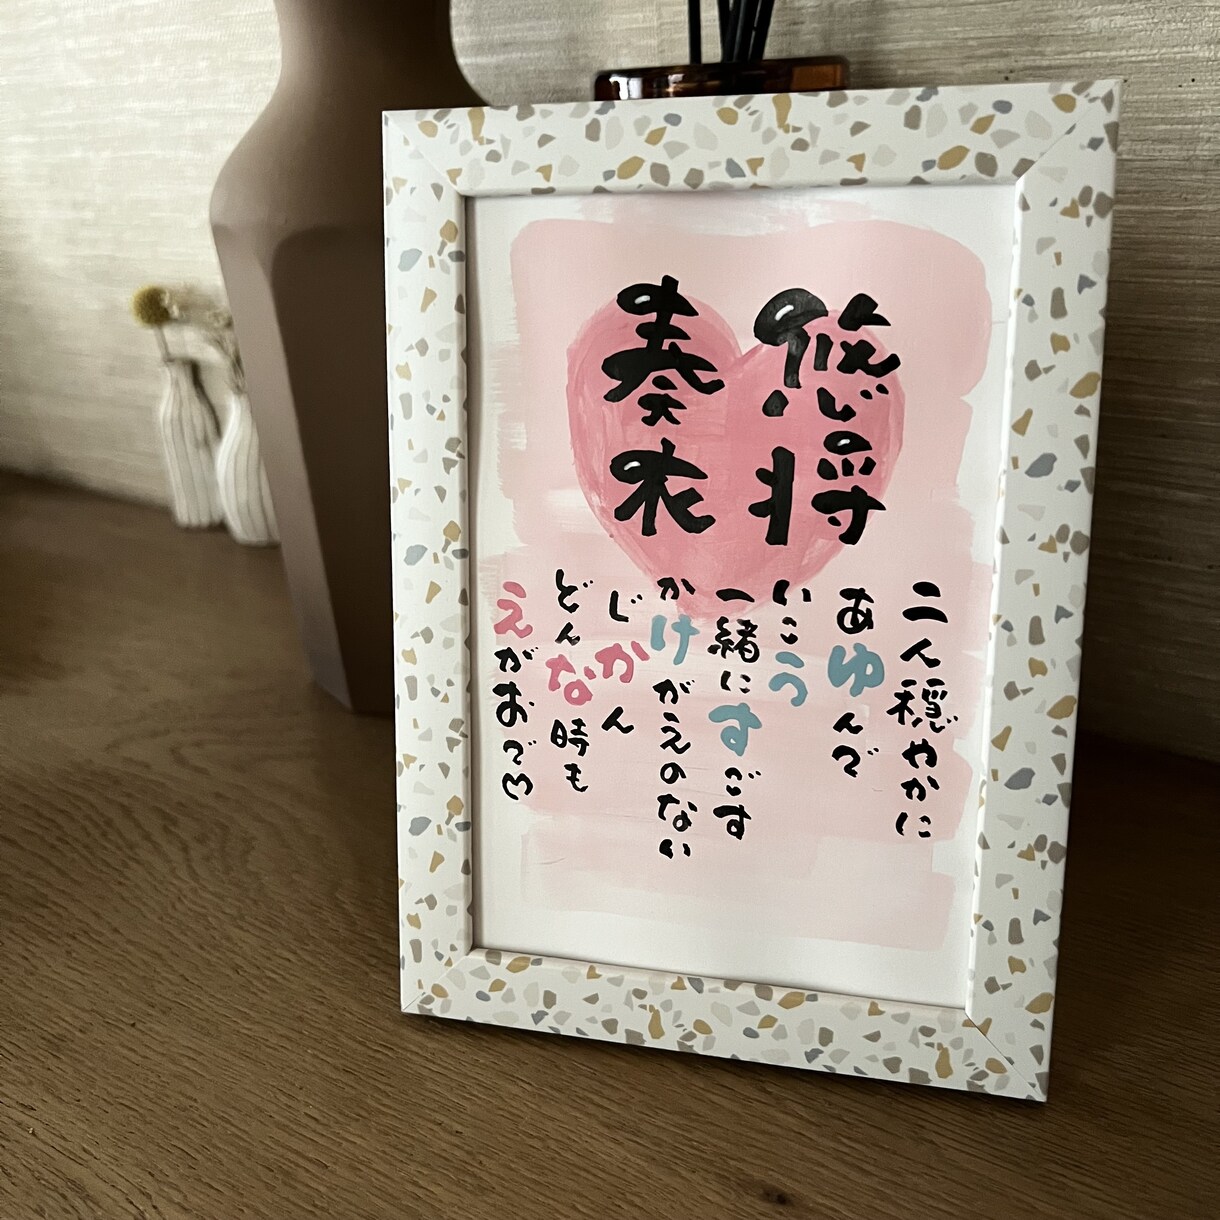 悠将
奏衣
二人穏やかに
あゆんで
いこう
一緒にすごす
かけがえのない
じかん
どんな時も
えがおで♡